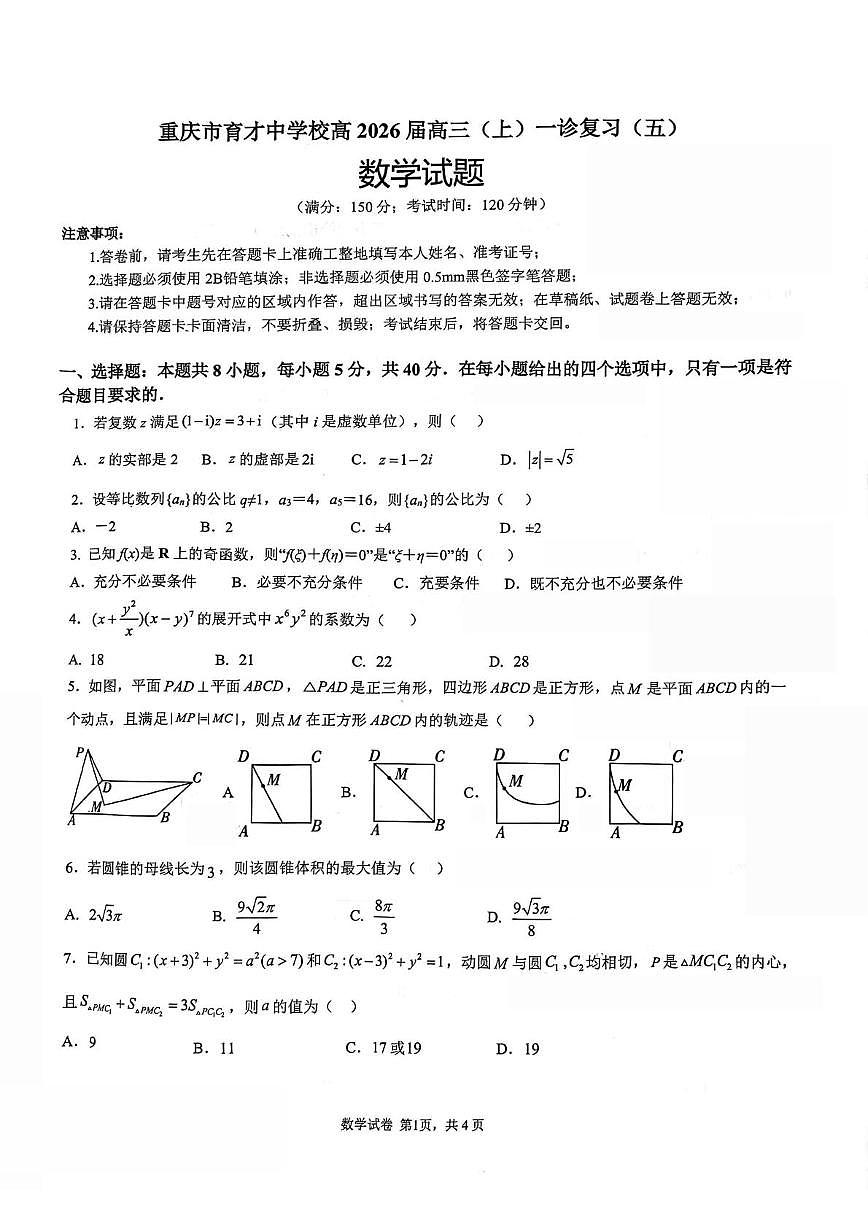 重庆市育才中学校高 2026 届高三（上）一诊复习（五）
数学试题
（满分：150 分；考试时间：120 分钟）
注意事项：
1.答卷前，请考生先在答题卡上准确工整地填写本人姓名、准考证号；
2.选择题必须使用 2B铅笔填涂；非选择题必须使用 0.5mm黑色签字笔答题；
3.请在答题卡中题号对应的区域内作答，超出区域书写的答案无效；在草稿纸、试题卷上答题无效；
4.请保持答题卡卡面清洁，不要折叠、损毁；考试结束后，将答题卡交回。
一、选择题：本题共 8 小题，每小题 5 分，共 40 分．在每小题给出的四个选项中，只有一项是符
合题目要求的．
1．若复数 z 满足 (1−i)z = 3+i（其中 i 是虚数单位），则（ ）
A．z 的实部是 2 B．z 的虚部是 2i C．z =1−2i D．|z| = √5
2．设等比数列{aₙ}的公比 q≠1，a₃＝4，a₅＝16，则{aₙ}的公比为（ ）
A．－2 B．2 C．±4 D．±2
3．已知 f(x)是 R 上的奇函数，则“f(ξ)＋f(η)＝0”是“ξ＋η＝0”的（ ）
A．充分不必要条件 B．必要不充分条件 C．充要条件 D．既不充分也不必要条件
4．(x + y²/x)(x − y)⁷ 的展开式中 x⁶y² 的系数为（ ）
A. 18 B. 21 C. 22 D. 28
5．如图，平面 PAD⊥平面 ABCD，△PAD 是正三角形，四边形 ABCD 是正方形，点 M 是平面 ABCD 内的一
个动点，且满足|MP|=|MC|，则点 M 在正方形 ABCD 内的轨迹是（ ）
P D C A M B
A D C M A B
B. D C M A B
C. D C M A B
D. D C M A B
6．若圆锥的母线长为 3，则该圆锥体积的最大值为（ ）
A. 2√3π B. 9√2π/4 C. 8π/3 D. 9√3π/8
7．已知圆 C₁ : (x+3)² + y² = a² (a > 7) 和 C₂ : (x−3)² + y² = 1，动圆 M 与圆 C₁ ,C₂ 均相切，P 是 △MC₁C₂ 的内心，
且 S△PMC₁ + S△PMC₂ = 3S△PC₁C₂，则 a 的值为（ ）
A．9 B．11 C．17 或 19 D．19
数学试卷 第1页，共 4 页